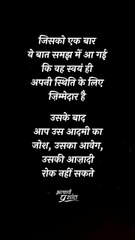 जिसको एक बार
ये बात समझ में आ गई
कि वह स्वयं ही
अपनी स्थिति के लिए
ज़िम्मेदार है
उसके बाद
आप उस आदमी का
जोश, उसका आवेग,
उसकी आज़ादी
रोक नहीं सकते
आचार्य
प्रशांत